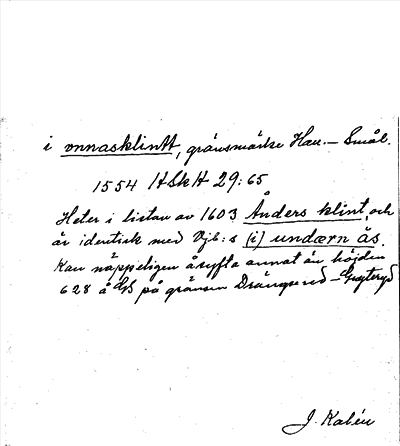 i onnasklintt, gränsmärke Hall. – Smål.
1554 HSkH 29:65
Heter i listan av 1603 Ånders klint, och
är identisk med Vjb:s (i) undærn ås.
Kan näppeligen åsyfta annat än höjden
628 å GB på gränsen Drängsered –
J. Kalén